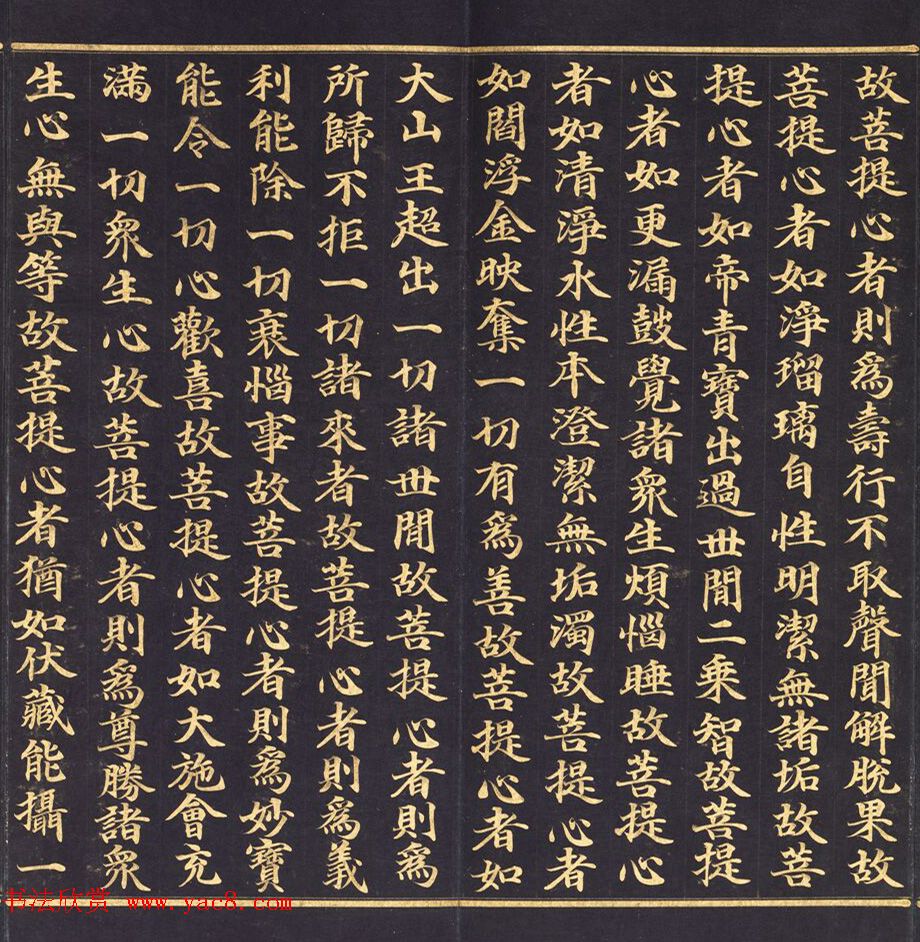 故菩提心者則為壽行不取聲聞解脫果故
菩提心者如淨瑠璃自性明潔無諸垢故菩
提心者如帝青寶出過世間二乘智故菩提
心者如更漏鼓覺諸眾生煩惱睡故菩提心
者如清淨水性本澄潔無垢濁故菩提心者
如閻浮金映奪一切有為善故菩提心者如
大山王超出一切諸世間故菩提心者則為
所歸不拒一切諸來者故菩提心者則為義
利能除一切衰惱事故菩提心者則為妙寶
能令一切心歡喜故菩提心者如大施會充
滿一切眾生心故菩提心者則為尊勝諸眾
生心無與等故菩提心者猶如伏藏能攝一
书法欣赏 www.yac8.com